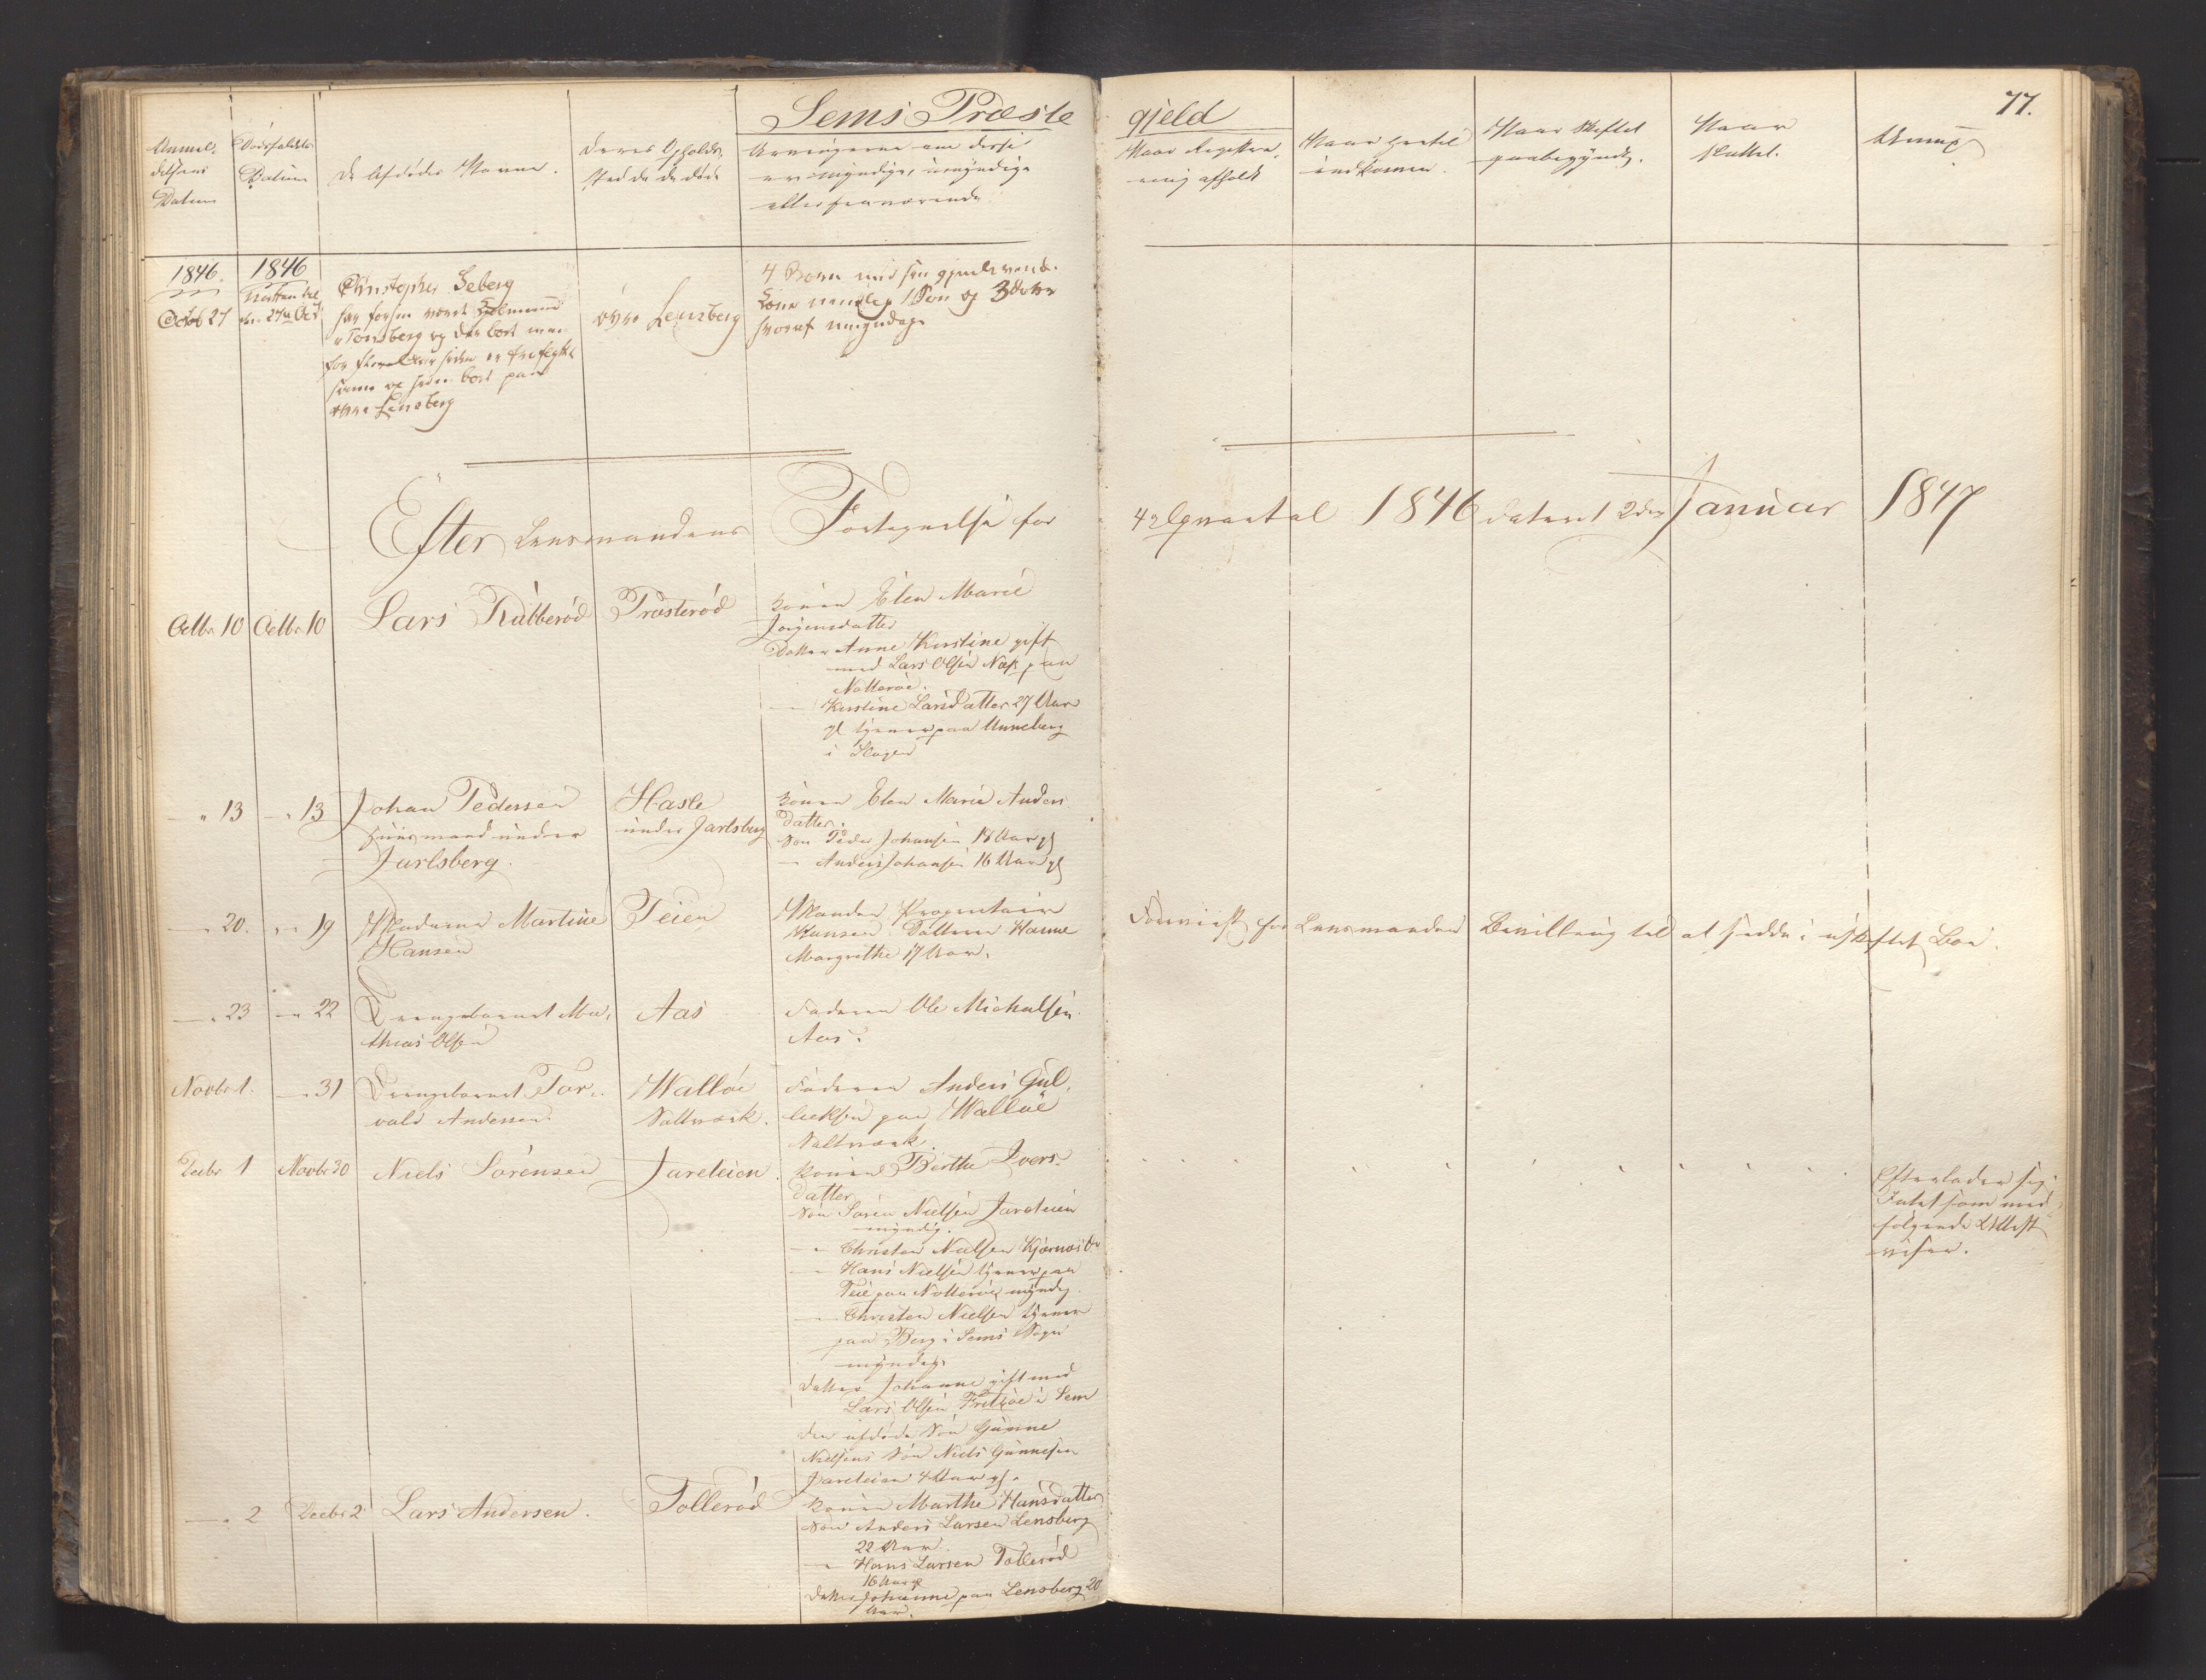 Sems Præste
gjeld
77.
Anmel-
delsens
Datum
Dødsfaldets
Datum
De Afdødes Navne.
Deres Opholds-
sted da de døde
Arvingerne om disse
ere myndige, umyndige
eller fraværende
Naar Registre-
ring afholdt
Naar hertil
indkommen.
Naar Skiftet
paabegyndt.
Naar
sluttet.
Anmp
1846
Octob 27
1846
Natten til
den 27de Oct
Christopher Seberg
har forhen været
i Tønsberg og der boet men
for flere Aar siden er fraflyttet
samme og siden boet paa
øvre Lensberg
øvre Lensberg
4 Børn med sin gjenlevende
Kone nemlig 1 Søn og 3 Døttre
hvoraf umyndige
Efter Lensmandens Fortegnelse for
4de Qvartal 1846 dateret 2den Januar 1847
Octbr 10
Octbr 10
Lars Rubberød
Træsterød
Konen Elen Marie
Jørgensdatter
Datter Anne Kirstine gift
med Lars Olsen Næs paa
Nøtterøe.
— Kirstine Larsdatter 27 Aar
gl tjener paa Unneberg
i Slagen
" 13
" 13
Johan Pedersen
Huusmand under
Jarlsberg.
Hasle
under Jarlsberg
Konen Elen Marie Anders
datter.
Søn Peder Johansen 18 Aar gl
— Anders Johansen 16 Aar gl
" 20.
" 19
Madame Martine
Hansen
Teien
Manden Proprietair
Hansen. Datteren Hanne
Margrethe 17 Aar.
Foreviist for Lensmanden Bevilling til at sidde i uskiftet Boe.
" 23
" 22
Drengebarnet Ma-
thias Olsen
Aas
Faderen Ole Michalsen
Aas.
Novbr 1.
" 31
Drengebarnet Tor-
vald Andersen
Walløe
Saltværk.
Faderen Anders Gul-
liksen paa Walløe
Saltværk.
Decbr 1
Novbr 30
Niels Sørensen
Jareteien.
Konen Berthe Ivers-
datter
Søn Søren Nielsen Jareteien
myndig.
— Christen Nielsen Kjærnæs do
— Hans Nielsen tjener paa
Teie paa Nøtterøe, myndig.
— Christen Nielsen tjener
paa Berg i Sems Sogn
myndig.
Datter Johanne gift med
Lars Olsen Fritzøe i Sem
den afdøde Søn Gunne
Nielsens Søn Niels Gunnesen
Jareteien 4 Aar gl.
Efterlader sig
Intet som med-
følgende Attest
viser.
" 2
Decbr 2
Lars Andersen.
Tollerød
Konen Marthe Hansdatter
Søn Anders Larsen Lensberg
22 Aar.
— Hans Larsen Tollerød
16 Aar gl
Datter Johanne paa Lensberg 20
Aar.